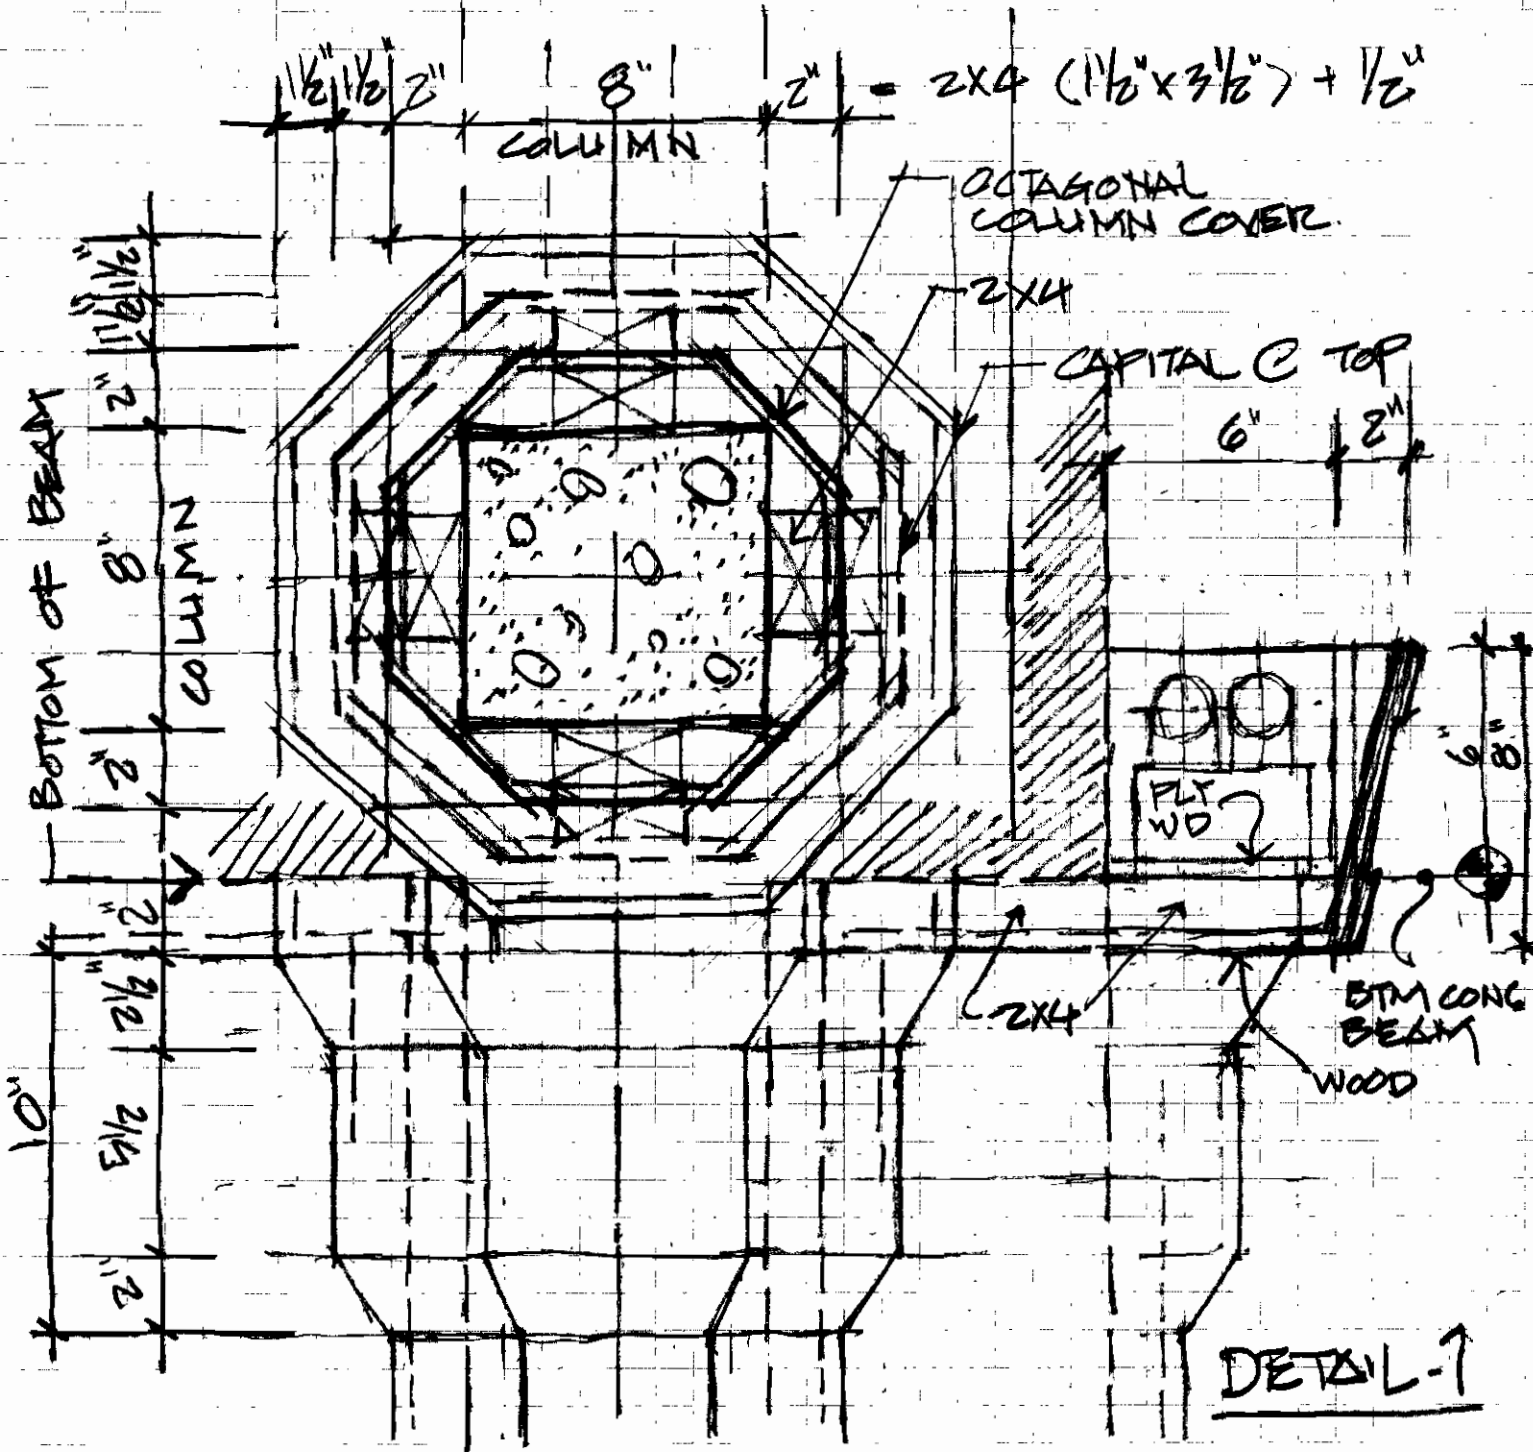 1½" 1½" 2" 8" 2" = 2X4 (1½" x 3½") + ½"
COLUMN
OCTAGONAL
COLUMN COVER.
2X4
CAPITAL @ TOP
6" 2"
1½"
1½"
2"
8"
COLUMN
2"
BOTTOM OF BEAM
2"
2½"
5½
2"
10"
PLY
WD
6"
8"
2X4
BTM CONC
BEAM
WOOD
DETAIL-1